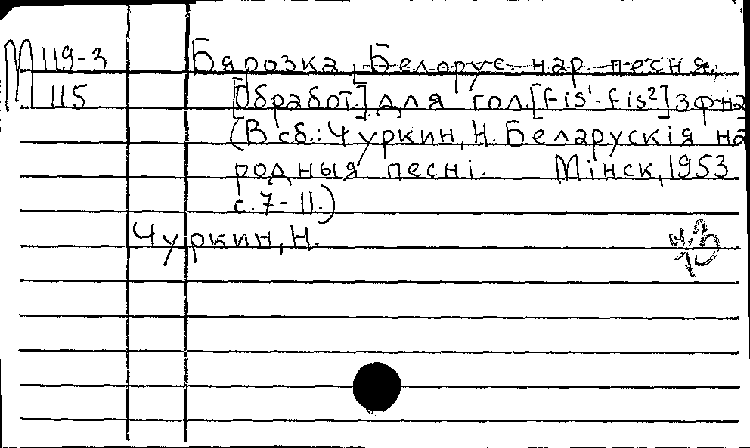 М 119-3
115
Бярозка. Белорус. нар. песня.
[Обработ.] для гол. [fis¹-fis²] з ф-на
(В сб.: Чуркин, Н. Беларускія на
родныя песні. Мінск, 1953
с. 7-11.)
Чуркин, Н.